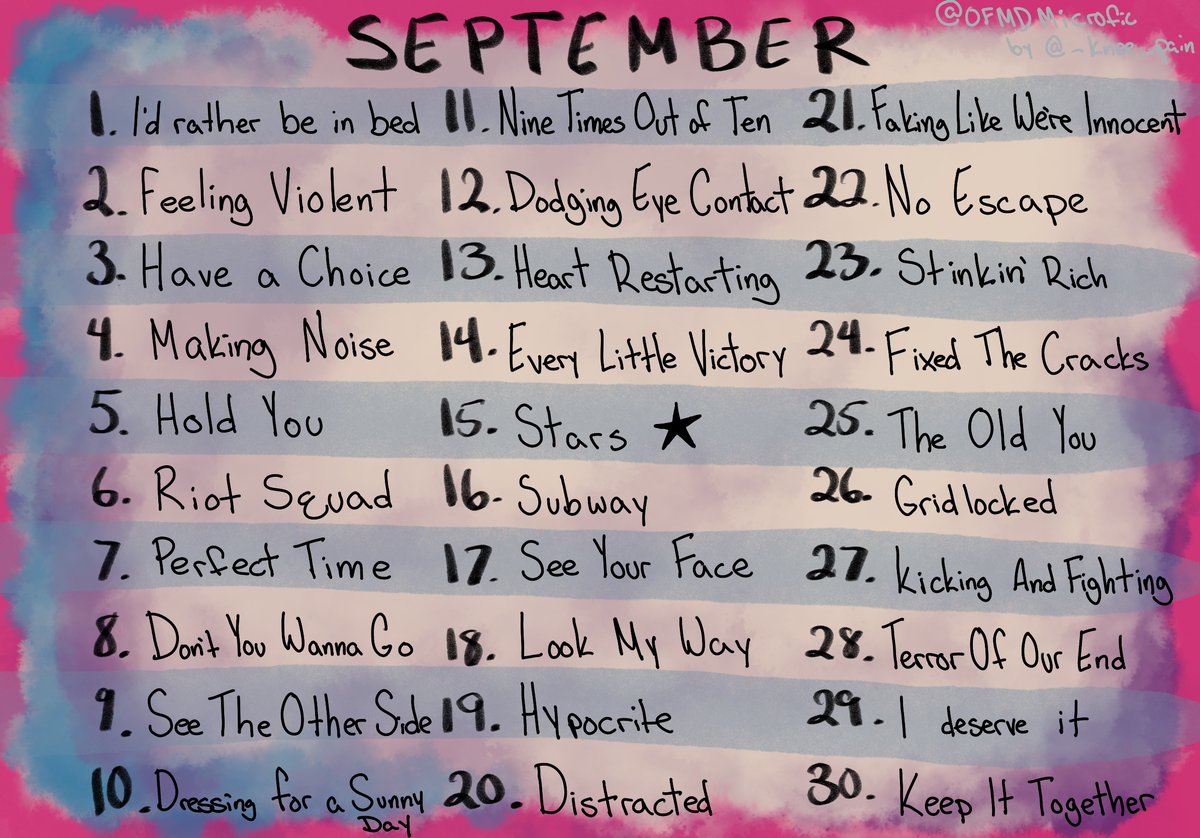 SEPTEMBER
@OFMDMicrofic
by @_knee_pain
1. I'd rather be in bed
2. Feeling Violent
3. Have a Choice
4. Making Noise
5. Hold You
6. Riot Squad
7. Perfect Time
8. Don't You Wanna Go
9. See The Other Side
10. Dressing for a Sunny
Day
11. Nine Times Out of Ten
12. Dodging Eye Contact
13. Heart Restarting
14. Every Little Victory
15. Stars ★
16. Subway
17. See Your Face
18. Look My Way
19. Hypocrite
20. Distracted
21. Faking Like We're Innocent
22. No Escape
23. Stinkin' Rich
24. Fixed The Cracks
25. The Old You
26. Gridlocked
27. Kicking And Fighting
28. Terror Of Our End
29. I deserve it
30. Keep It Together